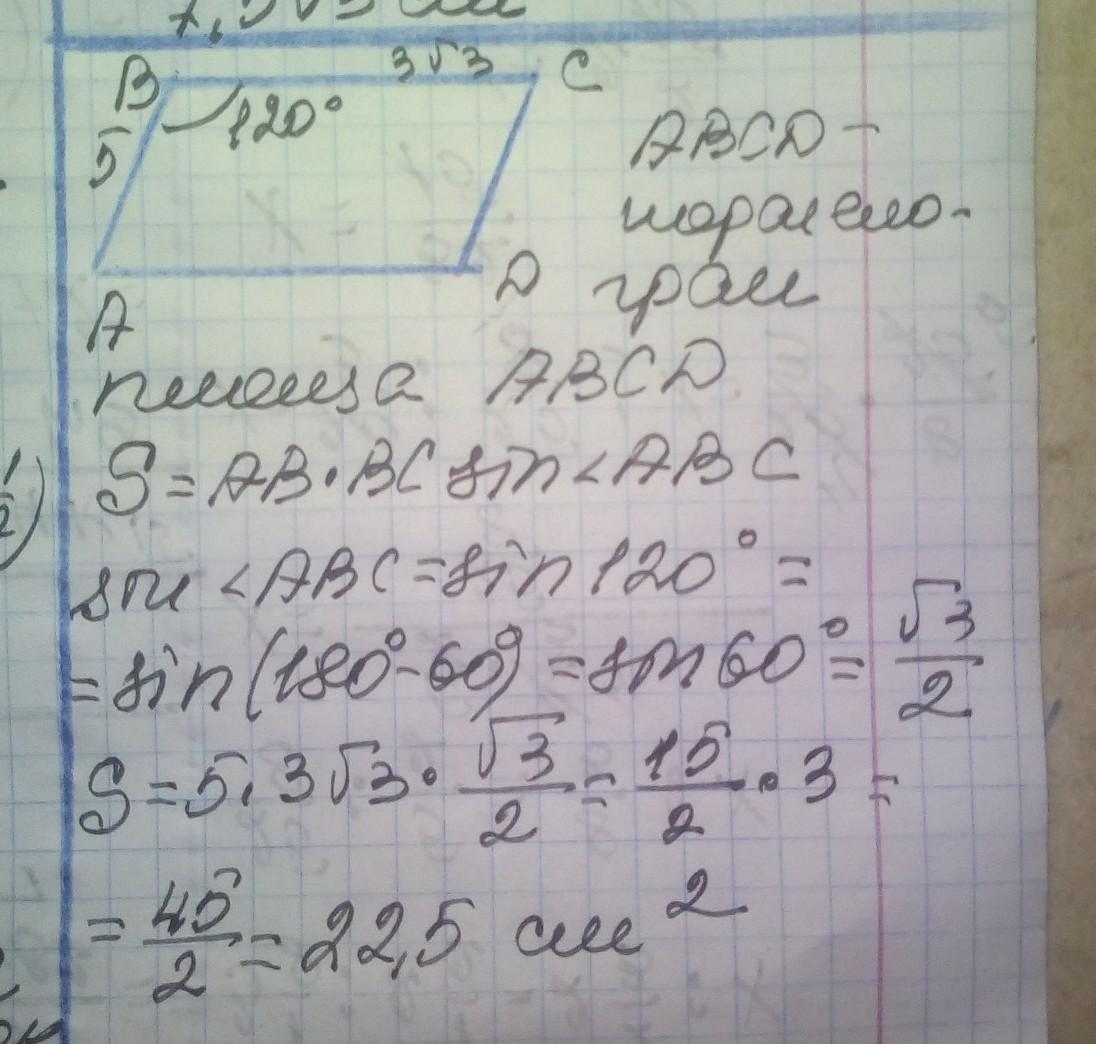 7,5√3 см
B 3√3 C
120°
5
A D
ABCD –
паралело-
грам
площа ABCD
S = AB · BC sin < ABC
sin < ABC = sin 120° =
= sin (180° - 60°) = sin 60° = √3/2
S = 5 · 3√3 · √3/2 = 15/2 · 3 =
= 45/2 = 22,5 см²